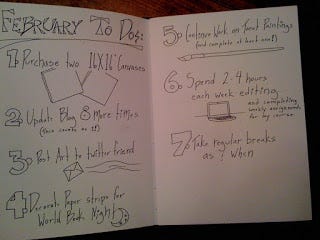 FEBRUARY TO DOS:
1. Purchase two 16X16" Canvases
2. Update Blog 8 more times
(this counts as 1!)
3. Post Art to twitter friend
4. Decorate Paper strips for
World Book Night
5. Continue Work on Tarot Paintings
(and complete at least one!)
6. Spend 2-4 hours
each week editing
and completing
weekly assignments
for my course
7. Take regular breaks
as & when